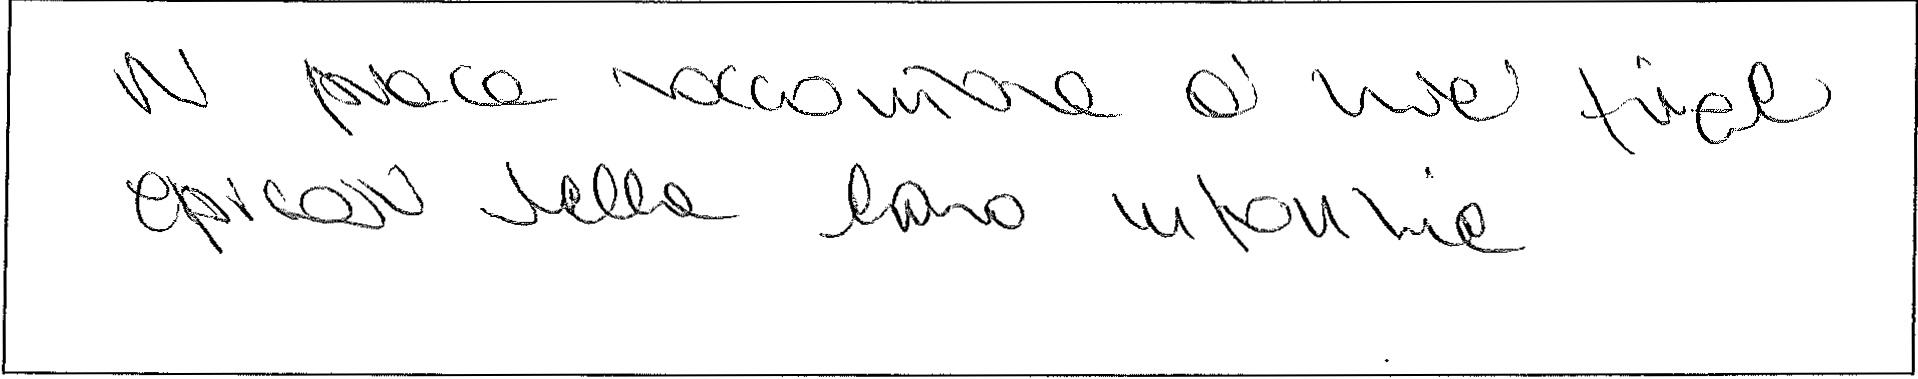 Mi piace raccontare ai miei figli
episodi della loro infanzia